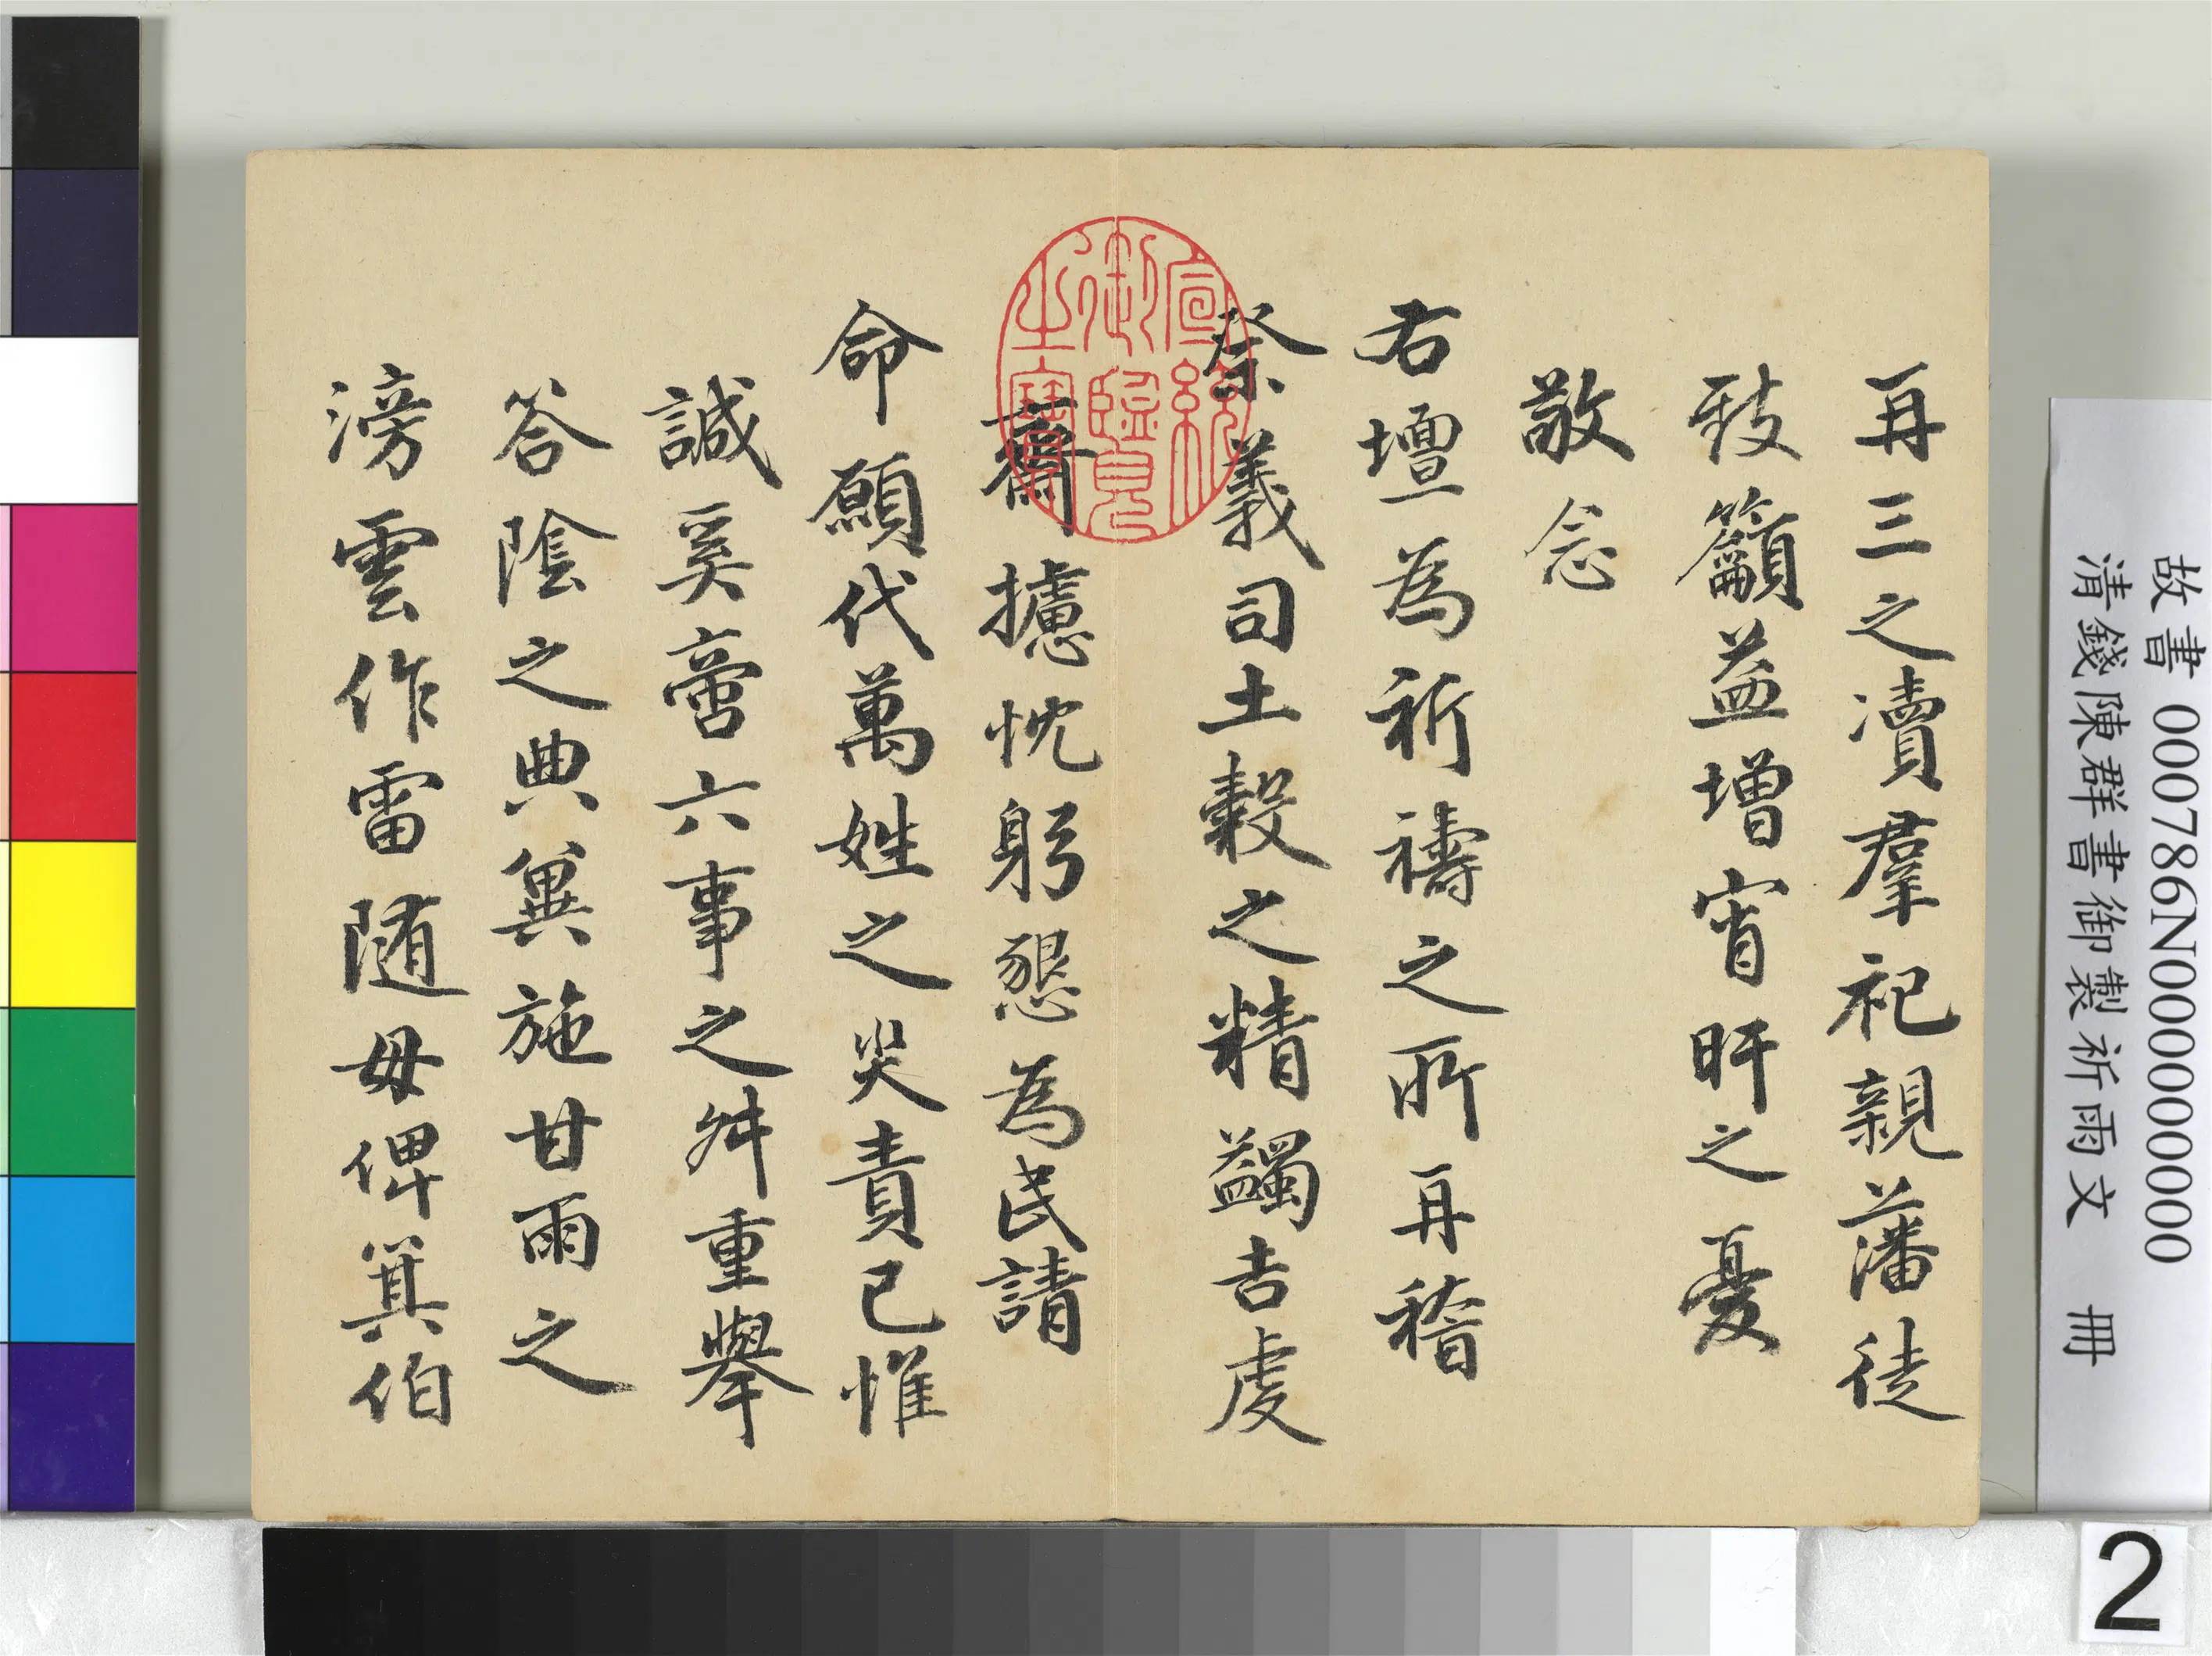 再三之瀆羣祀親藩徒
致籲益增宵旰之憂
敬念
右壇為祈禱之所再稽
祭義司土穀之精蠲吉處
齋攄忱躬懇為民請
命願代萬姓之災責己惟
誠奚啻六事之舛重舉
答陰之典冀施甘雨之
滂雲作雷隨毋俾箕伯
宣統
御覽
之寶
故書 000786N000000000
清錢陳群書御製祈雨文 冊
2